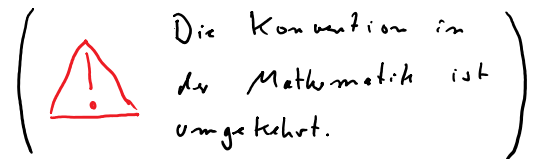 Die Konvention in
der Mathematik ist
umgekehrt.